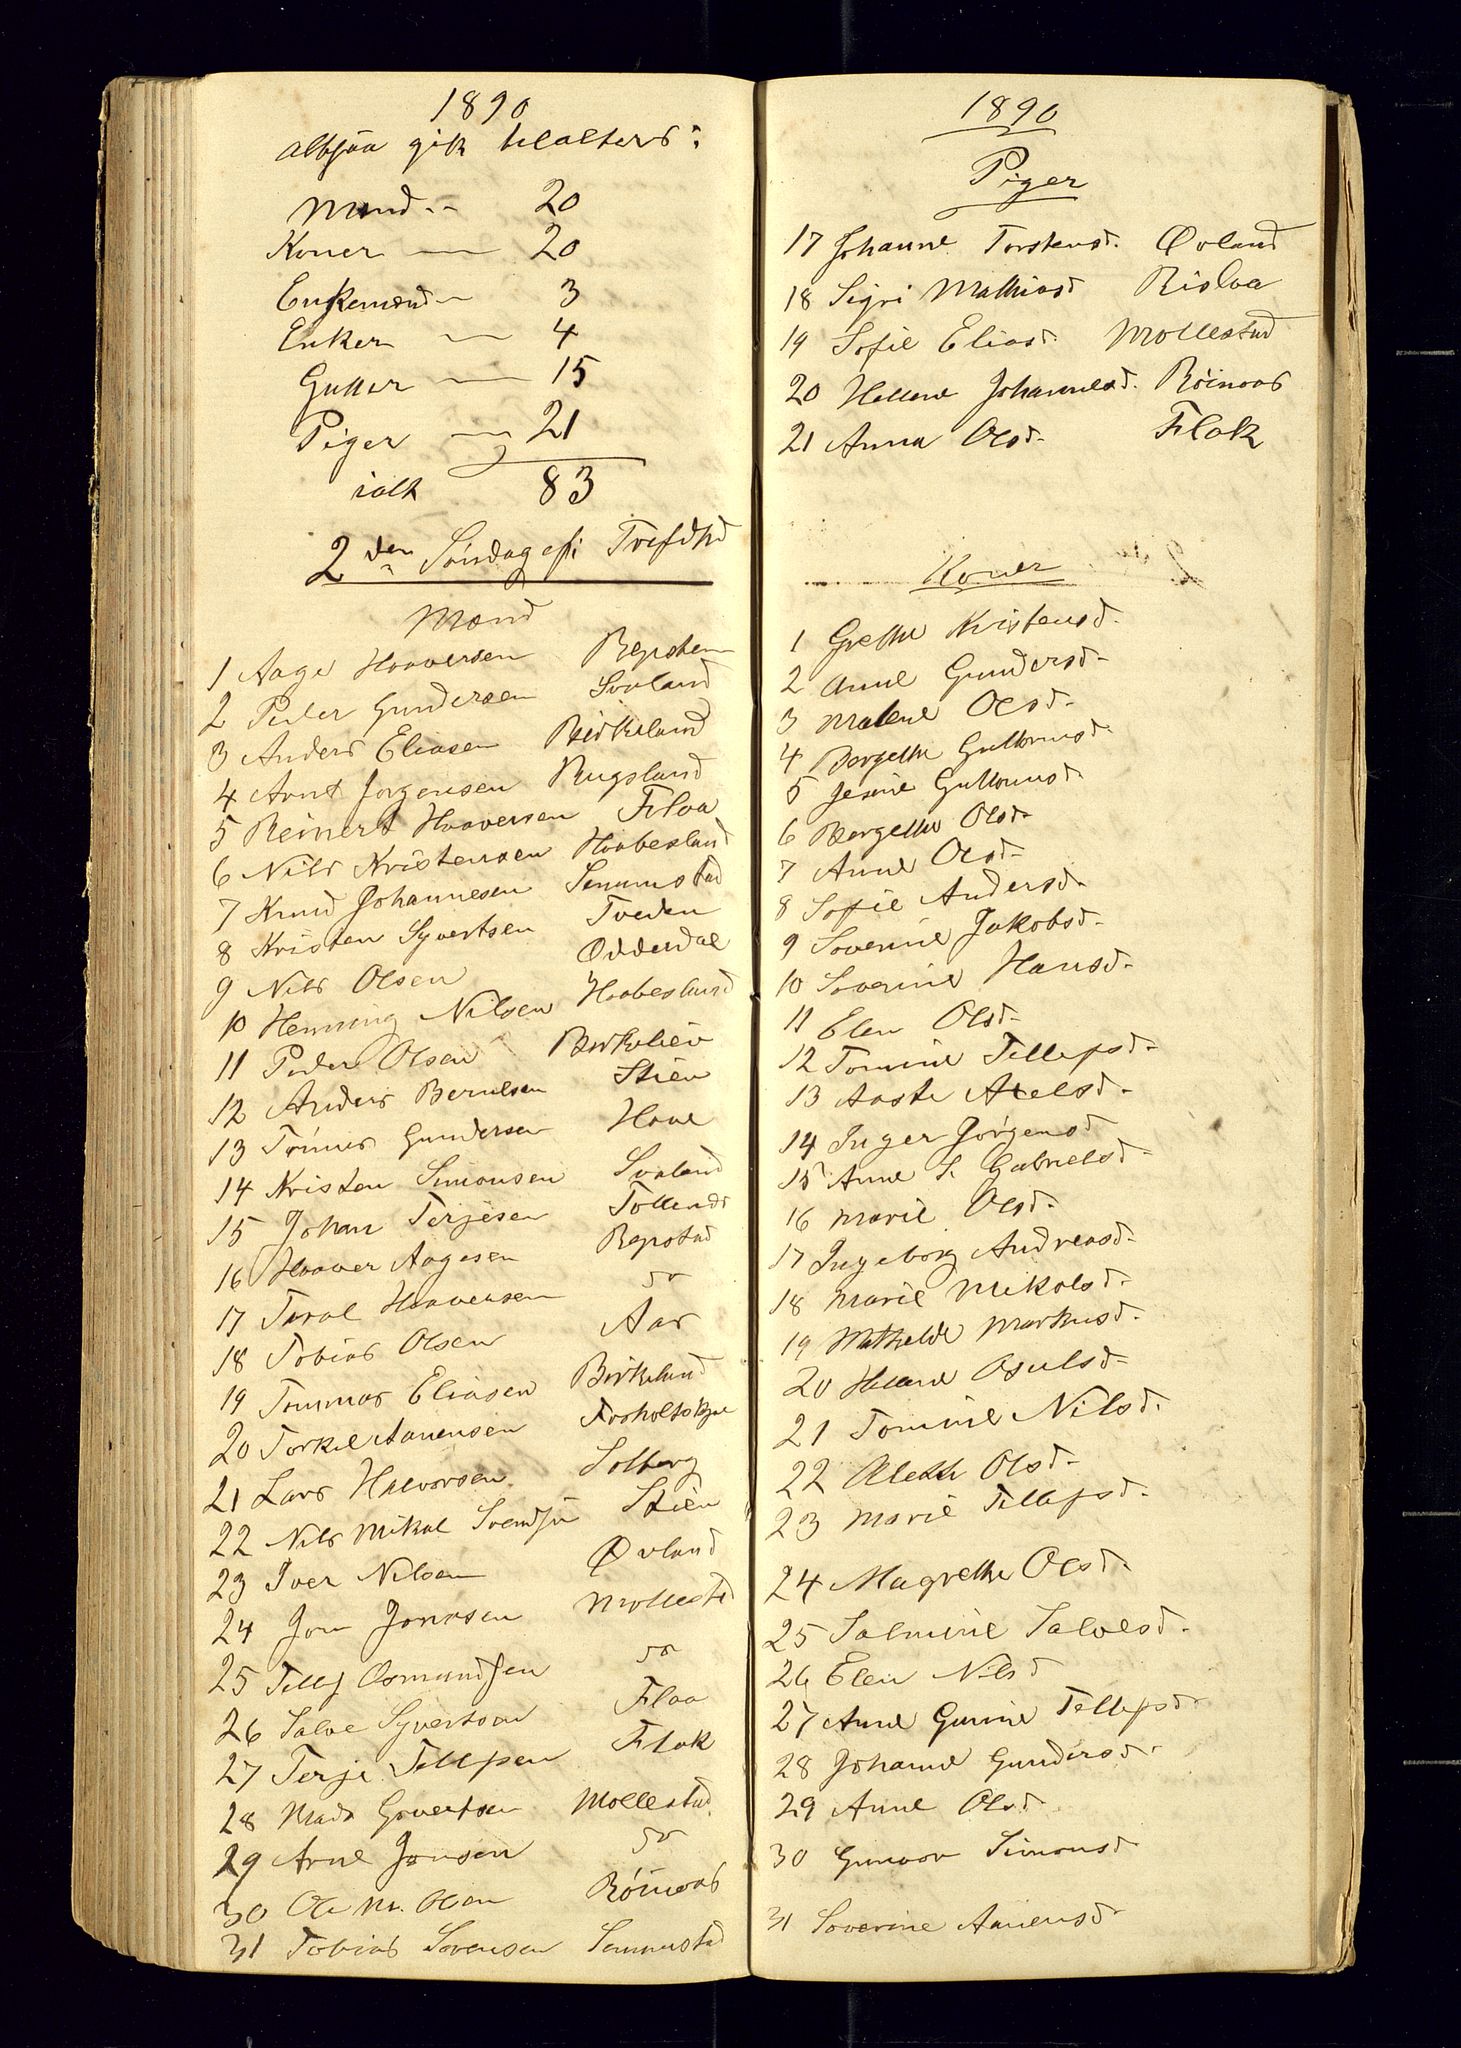 1890
altsaa gik til alters:
Mænd -- 20
Koner — 20
Enkemænd — 3
Enker — 4
Gutter — 15
Piger — 21
ialt 83
2den Søndag
Mænd
1 Aage Haaversen Repstad
2 Peder Gundersen Svaland
3 Anders Eliasen Birkeland
4 Arnt Jorgensen Rugsland
5 Reinert Haaversen Flaa
6 Nils Kristensen Haabesland
7 Knud Johannesen Senumstad
8 Kristen Syvertsen Tveden
9 Nils Olsen Oddersdal
10 Henning Nilsen Haabesland
11 Peder Olsen Birkelien
12 Anders Berulsen Stien
13 Tomas Gundersen Have
14 Kristen Simonsen Svaland
15 Johan Terjesen
16 Haaver Aagesen Repstad
17 Taral Haaversen do
18 Tobias Olsen Aas
19 Tommas Eliasen Birkeland
20 Torkel Aanensen
21 Lars Halvorsen Solberg
22 Nils Mikal Svendsen Stien
23 Iver Nilsen Øvland
24 Jon Jonasen Mollestd
25 Tellef Osmundsen do
26 Salve Syvertsen Flaa
27 Terje Tellefsen Flak
28 Mads Govertsen Mollestad
29 Arne Jensen do
30 Ole M. Olsen Röinaas
31 Tobias Sorensen Senumstad
1890
Piger
17 Johanne Torstensd. Øvland
18 Sigri Mathiasd Rislaa
19 Sofie Eliasd. Mollestad
20 Hellene Johannesd. Röinaas
21 Anna Olsd. Flak
Koner
1 Grethe Kristensd.
2 Anne Gundersd.
3 Malene Olsd.
4 Borgethe Gullormsd.
5 Jesine Gullormsd.
6 Borgethe Olsd.
7 Anne Olsd.
8 Sofie Andersd.
9 Soverine Jakobsd.
10 Soverine Hansd.
11 Elen Olsd.
12 Tomine Tellefsd.
13 Aaste Axelsd.
14 Inger Jörgensd
15 Anne S. Gabrielsd.
16 Marie Olsd.
17 Ingeborg Andreasd.
18 Marie Mikalsd.
19 Mathelde Markusd.
20 Hellene Osulsd.
21 Tomine Nilsd.
22 Alethe Olsd.
23 Marie Tellefsd.
24 Magrethe Olsd.
25 Salmine Salvesd.
26 Elen Nilsd
27 Anne Gunine Tellefsd.
28 Johanne Gundersd.
29 Anne Olsd.
30 Gunvor Simonsd.
31 Soverine Aanensd.